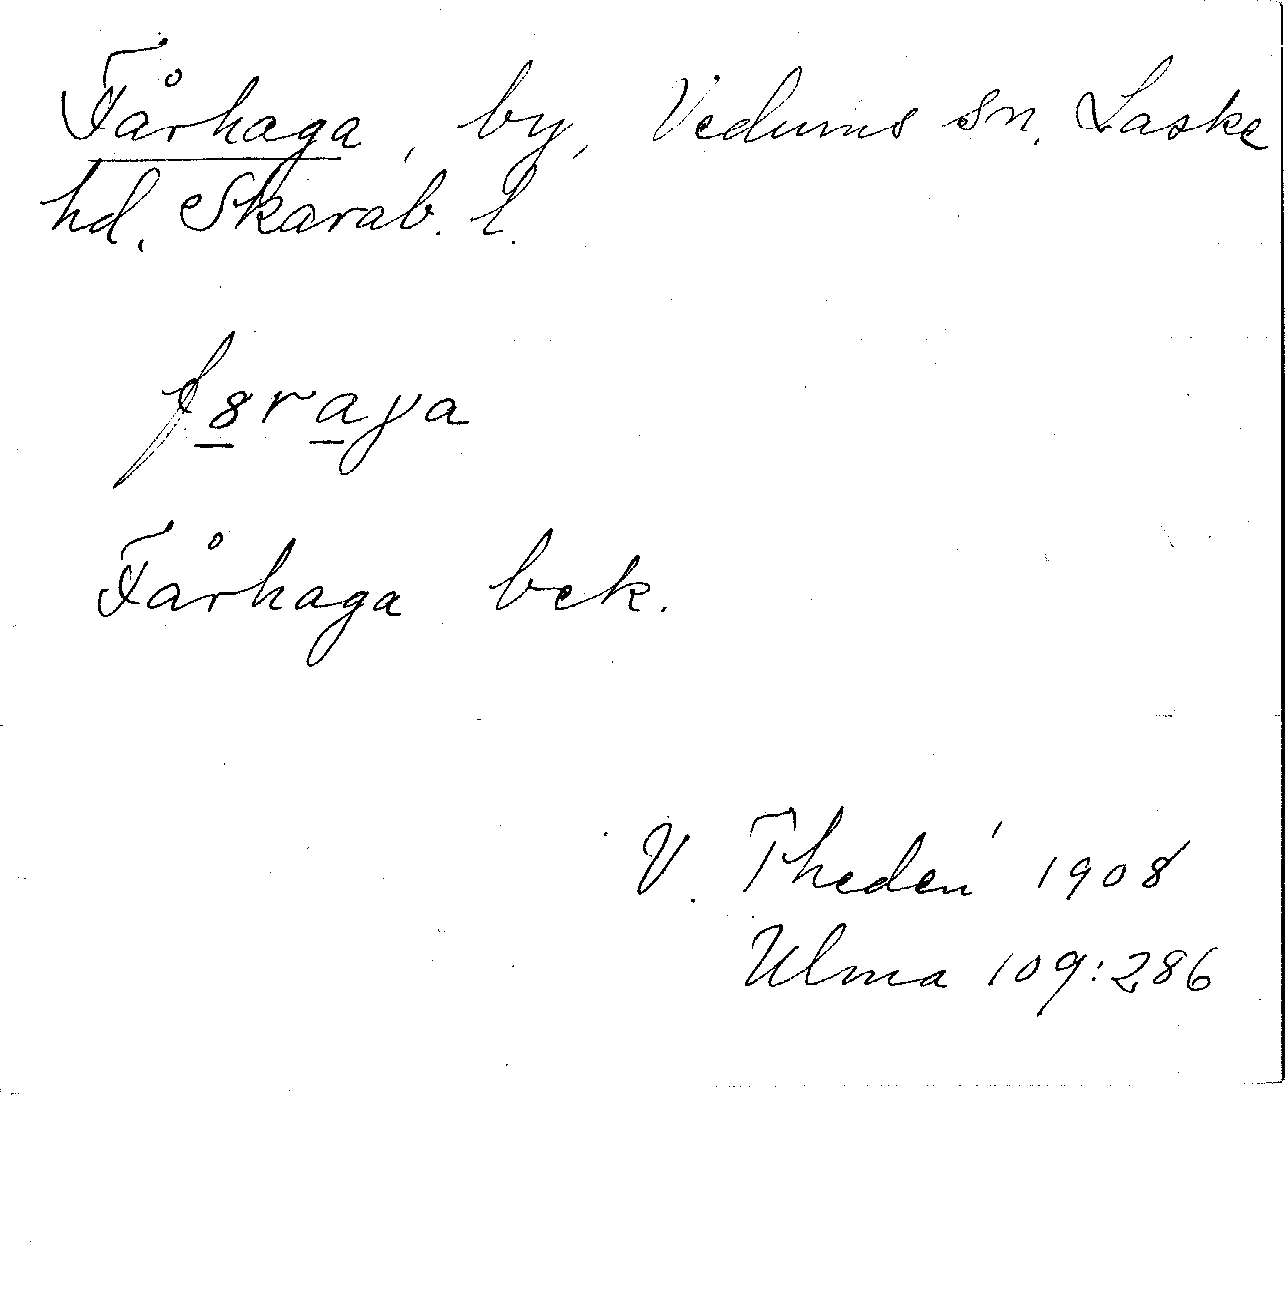 Fårhaga, by, Vedums sn. Laske
hd. Skarab. l.
f8raγa
Fårhaga bek.
V. Thedén 1908
Ulma 109:286